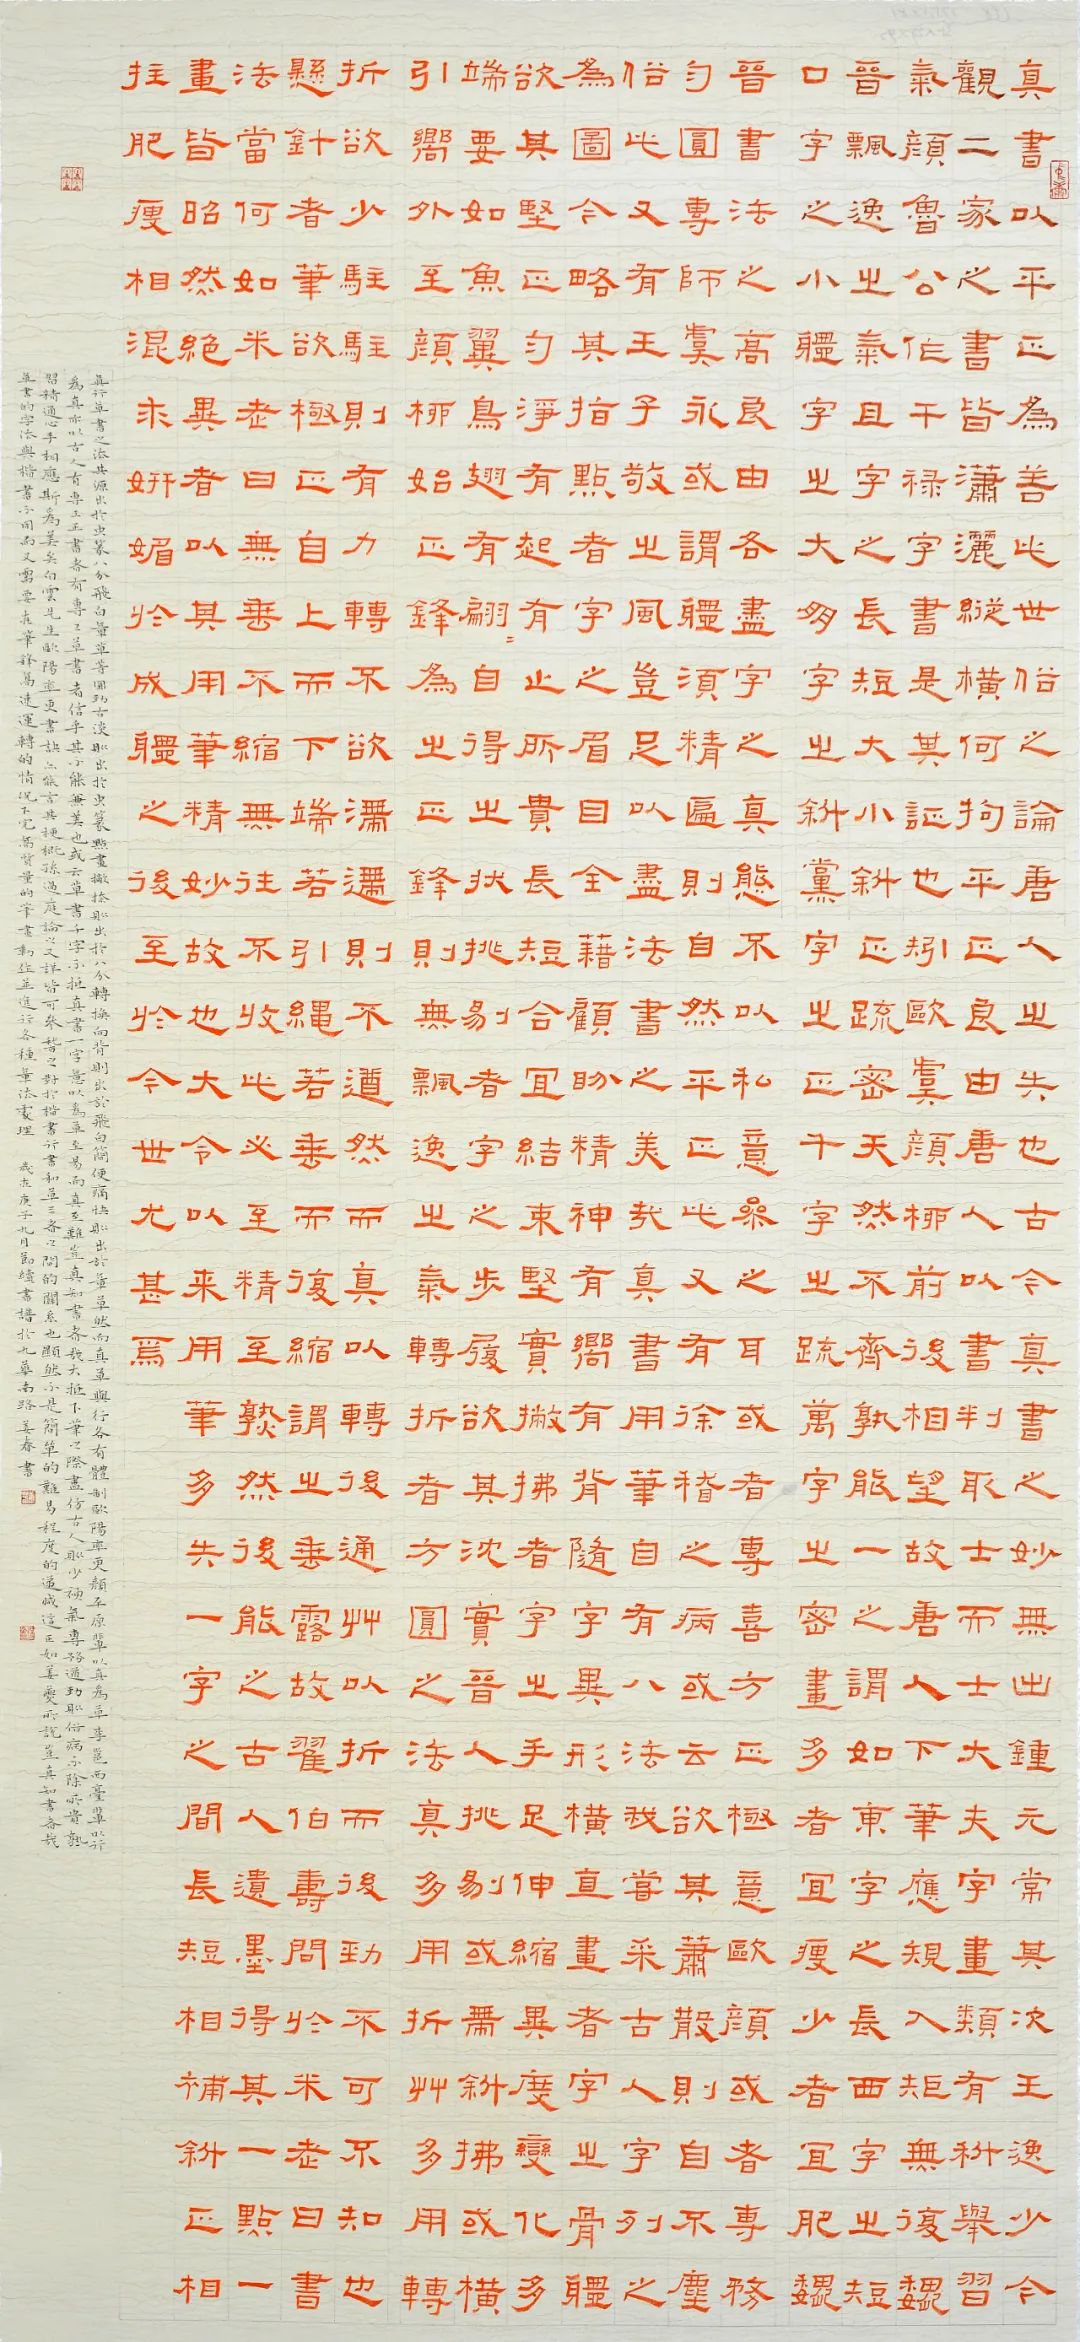 真書以平正為善此世俗之論唐人之失也古今真書之妙無出鍾元常其次王逸少今
觀二家之書皆瀟灑縱橫何拘平正良由唐人以書判取士而士大夫字畫類有科舉習
氣顏魯公作干祿字書是其証也矧歐虞顏柳前後相望故唐人下筆應規入矩無復魏
晉飄逸之氣且字之長短大小斜正疏密天然不齊孰能一之謂如東字之長西字之短
口字之小體字之大朋字之斜黨字之正千字之疏萬字之密畫多者宜瘦少者宜肥魏
晉書法之高良由各盡字之真態不以私意參之耳或者專喜方正極意歐顏或者專務
勻圓專師虞永或謂體須精匾則自然平正此又有徐稽之病或云欲其蕭散則自不塵
俗此又有王子敬之風豈足以盡法書之美哉真書用筆自有八法我嘗采古人字列之
為圖今略其指點者字之眉目全藉顧盼精神有嚮有背隨字異形橫直畫者字之骨體
欲其堅正勻淨有起有止所貴長短合宜結束堅實撇拂者字之手足伸縮異度變化多
端要如魚翼鳥翅有翩〻自得之狀挑剔者字之步履欲其沈實晉人挑剔或帶斜拂或橫
引嚮外至顏柳始正鋒為之正鋒則無飄逸之氣轉折者方圓之法真多用折艸多用轉
折欲少駐駐則有力轉不欲滯滯則不遒然而真以轉後通艸以折而後勁不可不知也
懸針者筆欲極正自上而下端若引繩若垂而復縮謂之垂露故翟伯壽問於米老曰書
法當何如米老曰無垂不縮無往不收此必至精至熟然後能之古人遺墨得其一點一
畫皆昭然絕異者以其用筆精妙故也大令以來用筆多失一字之間長短相補斜正相
拄肥瘦相混求妍媚於成體之後至於今世尤甚焉
真行草書之法其源出於虫篆八分飛白章草等圓勁古淡則出於虫篆點畫撥捺則出於八分轉換向背則出於飛白簡便痛快則出於章草然而真草與行各有體制歐陽率更顏平原輩以真為草李邕西臺輩以行
為真亦以古人有專工正書者有專工草書者信乎其不能兼美也或云草書千字不抵真書一字意以為草至易而真至難豈真知書者哉大抵下筆之際盡仿古人則少神氣專務遒勁則俗病不除所貴熟
習精通心手相應斯為美矣白雲先生歐陽率更書訣亦能言其梗概孫過庭論之又詳皆可參稽之對於楷書行書和草三者之間的關系也顯然不是簡單的難易程度的遞減這正如姜夔所說豈真知書者哉
草書的字法與楷書不同而又需要在筆鋒萬速運轉的情況下完高質量的筆畫動作並進行各種章法處理 歲在庚子九月節續書譜於九華南路 姜春書